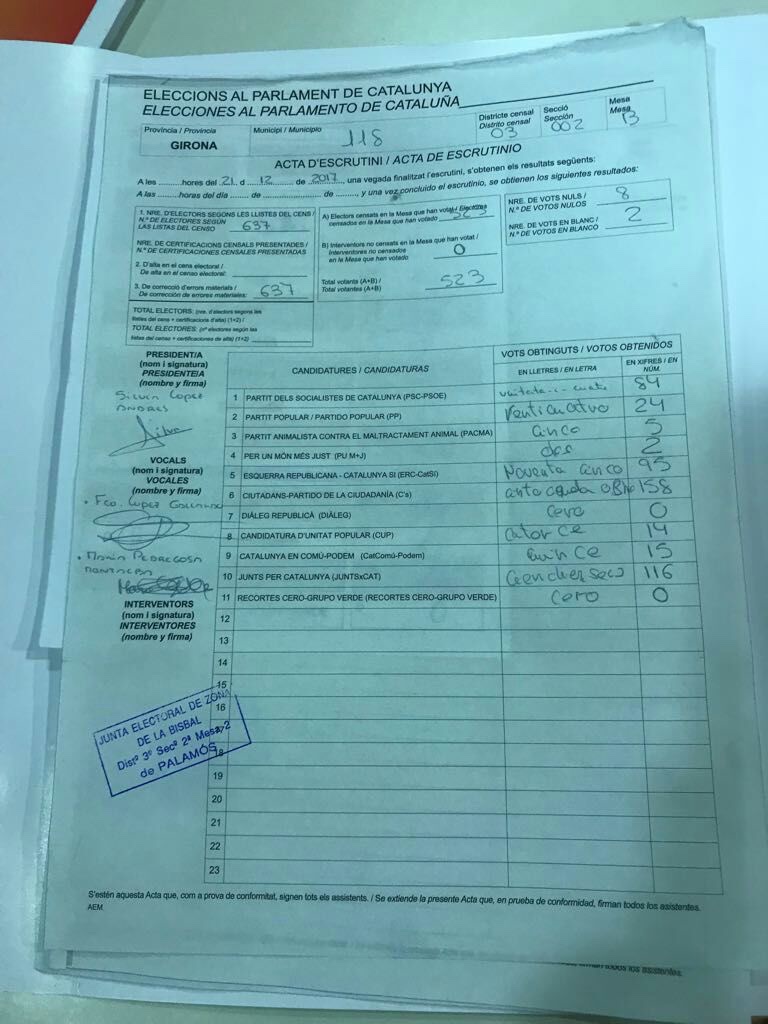 ELECCIONS AL PARLAMENT DE CATALUNYA
ELECCIONES AL PARLAMENTO DE CATALUÑA
Província / Provincia
GIRONA
Municipi / Municipio
118
Districte censal
Distrito censal
03
Secció
Sección
002
Mesa
Mesa
B
ACTA D'ESCRUTINI / ACTA DE ESCRUTINIO
A les ..........hores del 21 d 12 de 2017, una vegada finalitzat l'escrutini, s'obtenen els resultats següents:
A las ..........horas del día ........ de ........................ de ........, y una vez concluido el escrutinio, se obtienen los siguientes resultados:
1. NRE. D'ELECTORS SEGONS LES LLISTES DEL CENS /
N.º DE ELECTORES SEGÚN
LAS LISTAS DEL CENSO 637
NRE. DE CERTIFICACIONS CENSALS PRESENTADES /
N.º DE CERTIFICACIONES CENSALES PRESENTADAS
2. D'alta en el cens electoral /
De alta en el censo electoral:
3. De correcció d'errors materials /
De corrección de errores materiales: 637
TOTAL ELECTORS: (nre. d'electors segons les
llistes del cens + certificacions d'alta) (1+2) /
TOTAL ELECTORES: (nº electores según las
listas del censo + certificaciones de alta) (1+2)
A) Electors censats en la Mesa que han votat / Electores
censados en la Mesa que han votado 523
B) Interventors no censats en la Mesa que han votat /
Interventores no censados
en la Mesa que han votado 0
Total votants (A+B) /
Total votantes (A+B) 523
NRE. DE VOTS NULS /
N.º DE VOTOS NULOS 8
NRE. DE VOTS EN BLANC /
N.º DE VOTOS EN BLANCO 2
PRESIDENT/A
(nom i signatura)
PRESIDENTE/A
(nombre y firma)
Silvia Lopez
Andres
Silvia
VOCALS
(nom i signatura)
VOCALES
(nombre y firma)
Fco. Lopez
Maria Pedregosa
INTERVENTORS
(nom i signatura)
INTERVENTORES
(nombre y firma)
CANDIDATURES / CANDIDATURAS
VOTS OBTINGUTS / VOTOS OBTENIDOS
EN LLETRES / EN LETRA
EN XIFRES / EN NÚM.
1 PARTIT DELS SOCIALISTES DE CATALUNYA (PSC-PSOE) 84
2 PARTIT POPULAR / PARTIDO POPULAR (PP) Venticuatro 24
3 PARTIT ANIMALISTA CONTRA EL MALTRACTAMENT ANIMAL (PACMA) cinco 5
4 PER UN MÓN MÉS JUST (PU M+J) dos 2
5 ESQUERRA REPUBLICANA - CATALUNYA SÍ (ERC-CatSí) Noventa cinco 95
6 CIUTADANS-PARTIDO DE LA CIUDADANÍA (C's) 158
7 DIÀLEG REPUBLICÀ (DIÀLEG) Cero 0
8 CANDIDATURA D'UNITAT POPULAR (CUP) Catorce 14
9 CATALUNYA EN COMÚ-PODEM (CatComú-Podem) Quince 15
10 JUNTS PER CATALUNYA (JUNTSxCAT) 116
11 RECORTES CERO-GRUPO VERDE (RECORTES CERO-GRUPO VERDE) Cero 0
12
13
14
15
16
18
19
20
21
22
23
JUNTA ELECTORAL DE ZONA
DE LA BISBAL
Distº 3º Secº 2ª Mesa 2
de PALAMÓS
S'estén aquesta Acta que, com a prova de conformitat, signen tots els assistents. / Se extiende la presente Acta que, en prueba de conformidad, firman todos los asistentes.
AEM.
firman todos los asistentes.